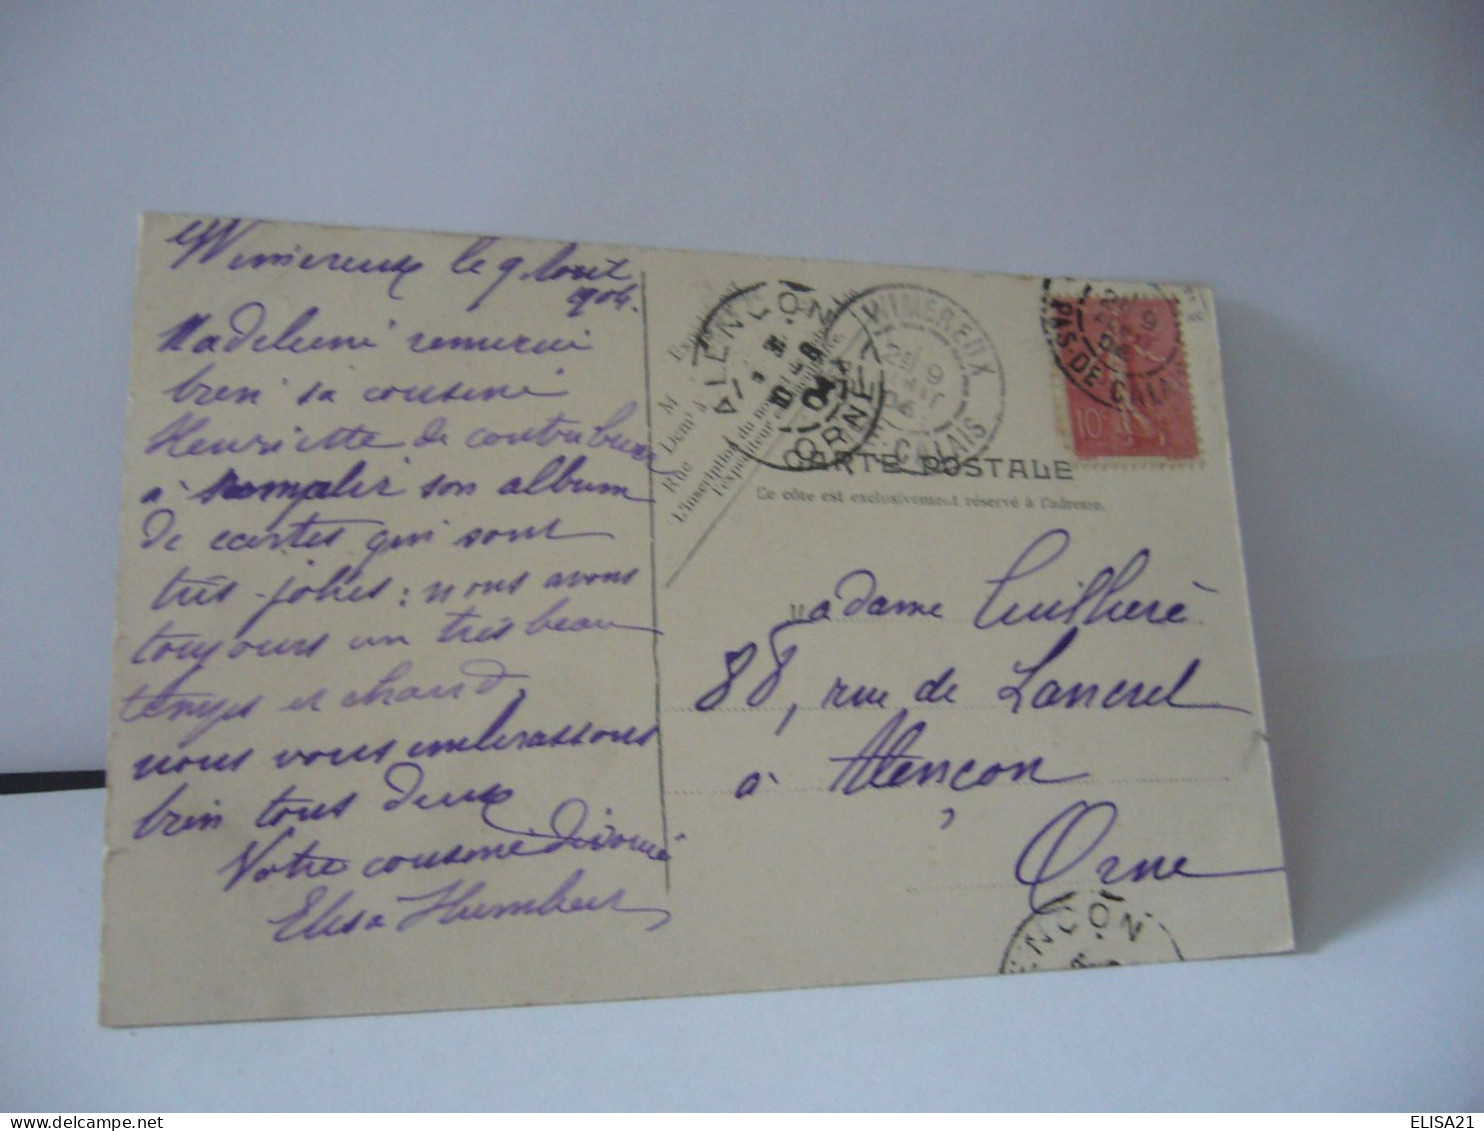 Wimereux le 9 Aout
1904.
Madeleine remercie
bien sa cousine
Henriette de contribuer
à remplir son album
de cartes qui sont
très jolies : nous avons
toujours un très beau
temps et chaud,
nous vous embrassons
bien tous deux
Votre cousine dévouée
Elisa Humbert
M
Rue
L'inscription du nom
l'expéditeur
ALENÇON
ORNE
WIMEREUX
CALAIS
PAS-DE-CALAIS
10
CARTE POSTALE
Ce côte est exclusivement réservé à l'adresse.
Madame Cuilleré
88, rue de Lancrel
à Alençon
Orne
ENÇON
ELISA21